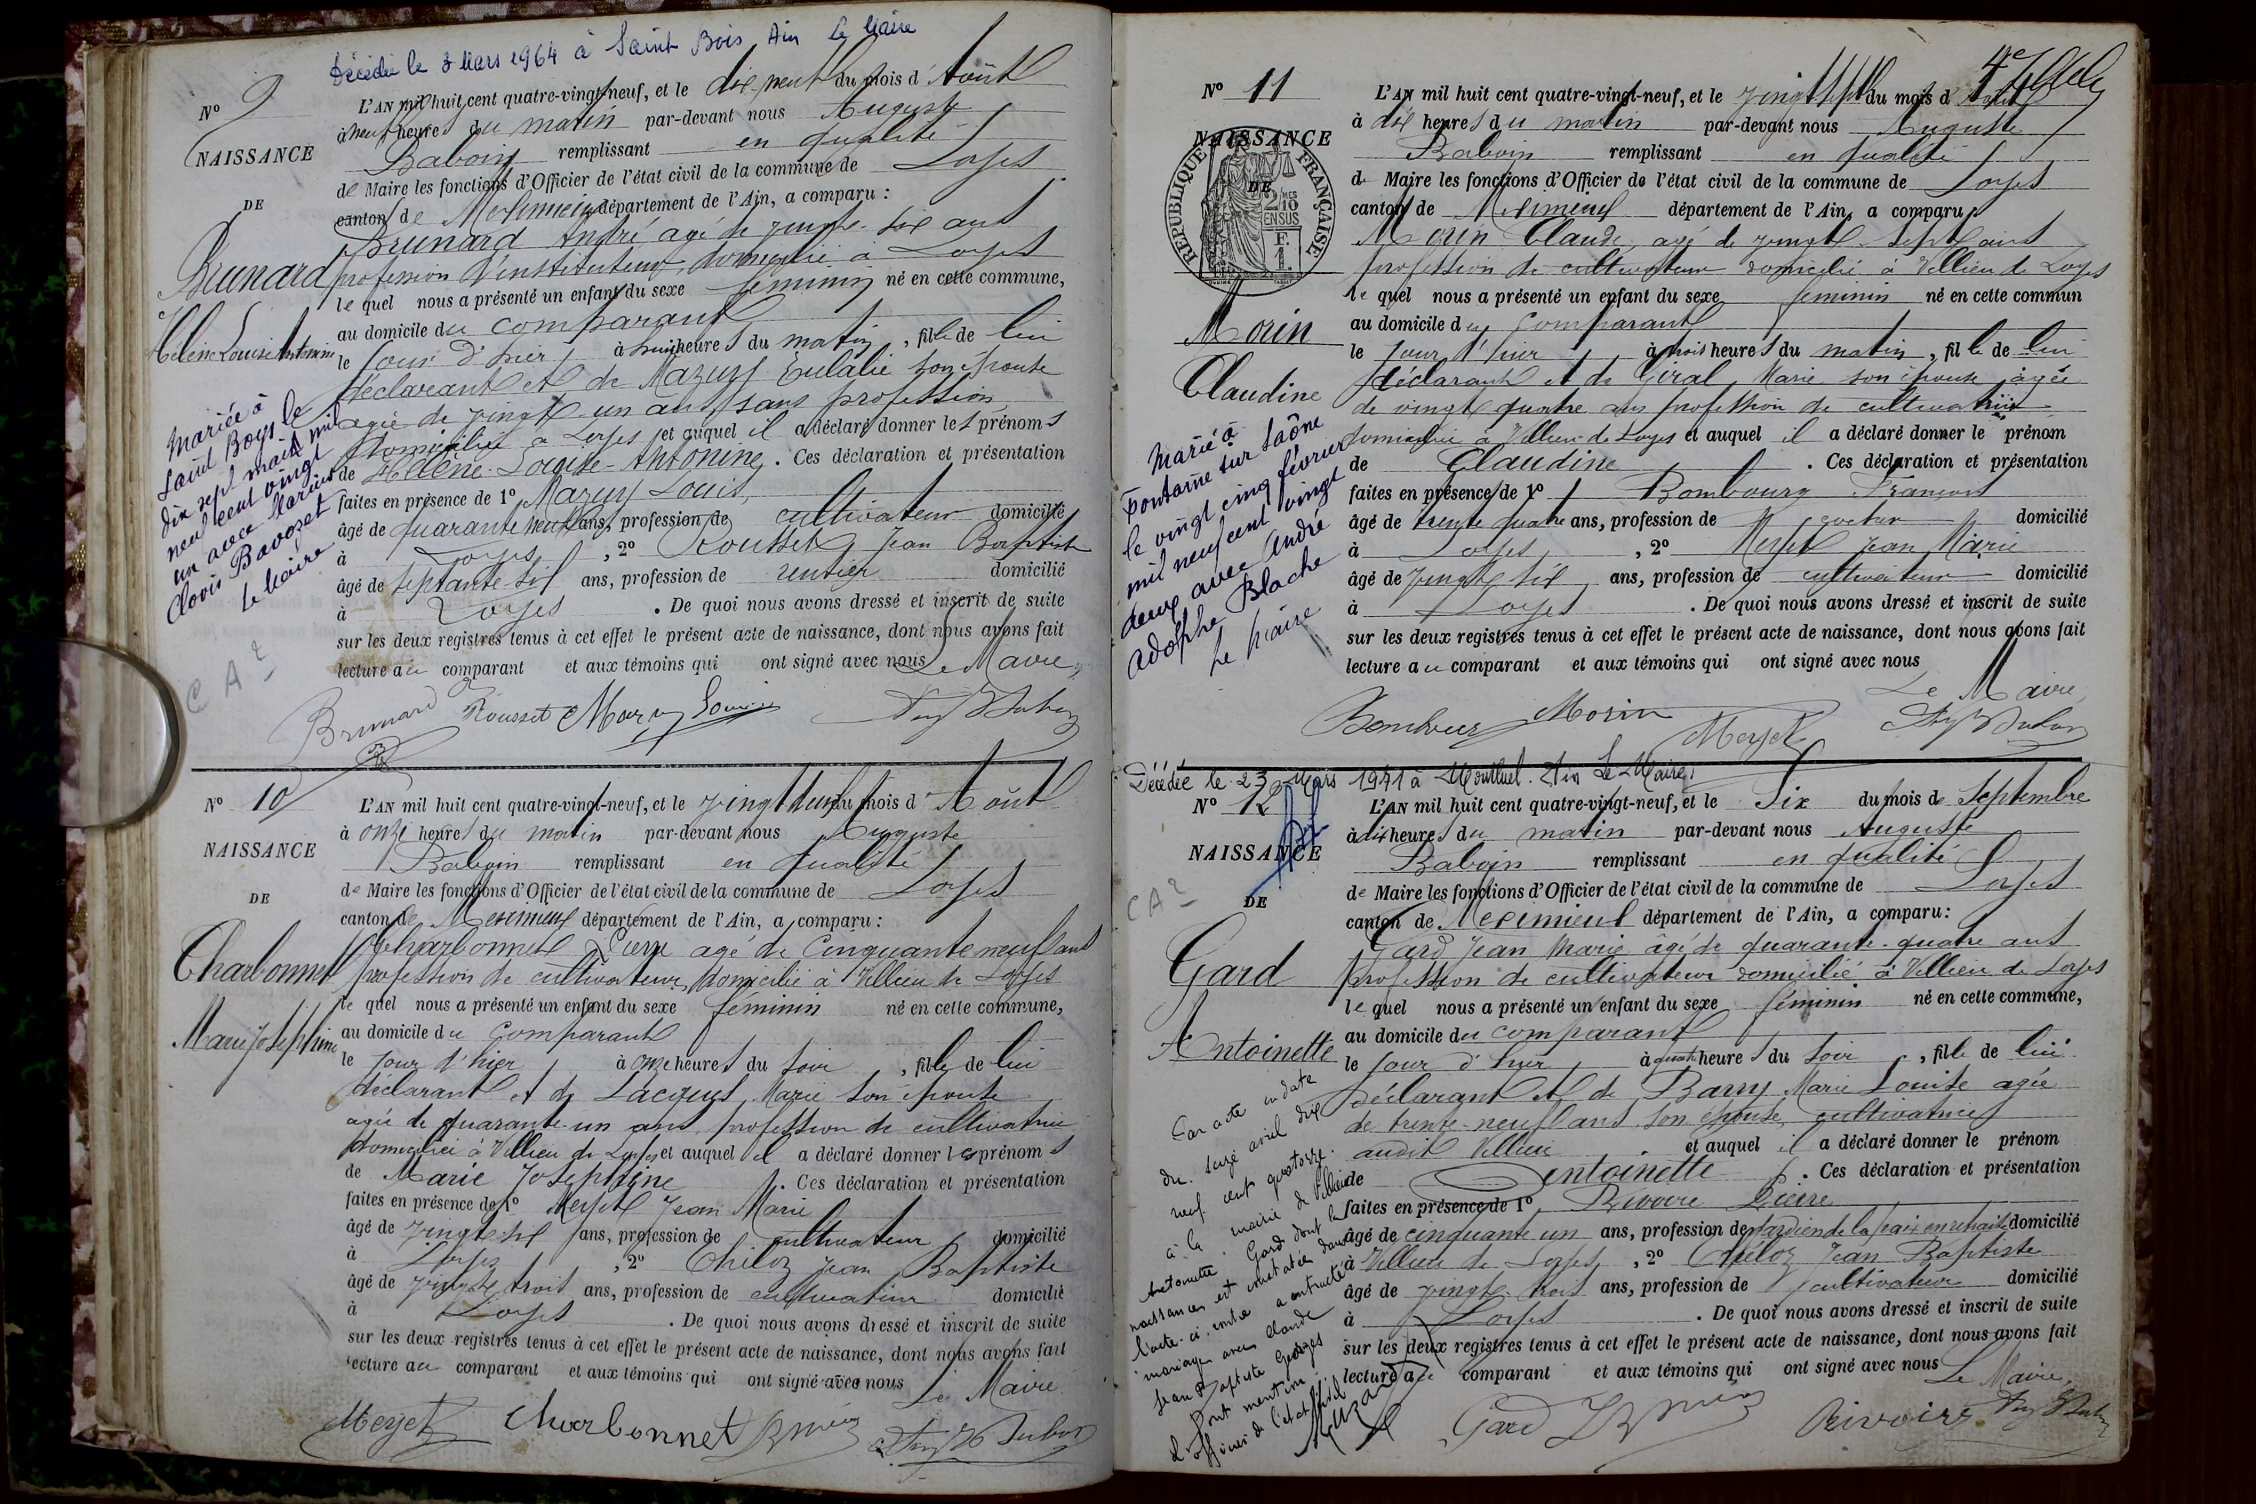 Décédée le 3 Mars 1964 à Saint Bois Ain Le Maire
N° 9
NAISSANCE
DE
Brunard
Hélène Louise Antonine
Mariée à
Saint Boys le
dix sept mai mil
neuf cent vingt
un avec Marius
Clovis Bavozet
Le Maire
CA2
L'AN mil huit cent quatre-vingt-neuf, et le dix-neuf du mois d'Août
à neuf heures du matin par-devant nous Auguste
Baboin remplissant en qualité
de Maire les fonctions d'Officier de l'état civil de la commune de Loyes
canton de Meximieux département de l'Ain, a comparu :
Brunard André agé de vingt-six ans
profession d'instituteur, domicilié à Loyes
le quel nous a présenté un enfant du sexe féminin né en cette commune,
au domicile du comparant
le jour d'hier à heures du matin, fille de lui
déclarant et de Mazuy Eulalie son épouse
agée de vingt-un ans, sans profession
domiciliée à Loyes et auquel il a déclaré donner les prénoms
de Hélène-Louise-Antonine. Ces déclaration et présentation
faites en présence de 1° Mazuy Louis,
âgé de quarante neuf ans, profession de cultivateur domicilié
à Loyes, 2° Rousset Jean Baptiste
âgé de septante six ans, profession de rentier domicilié
à Loyes. De quoi nous avons dressé et inscrit de suite
sur les deux registres tenus à cet effet le présent acte de naissance, dont nous avons fait
lecture au comparant et aux témoins qui ont signé avec nous Le Maire,
Brunard Rousset Mazuy Louis
N° 10
NAISSANCE
DE
Charbonnet
Marie Josephine
L'AN mil huit cent quatre-vingt-neuf, et le vingt deux du mois d'Août
à onze heures du matin par-devant nous Auguste
Baboin remplissant en qualité
de Maire les fonctions d'Officier de l'état civil de la commune de Loyes
canton de Meximieux département de l'Ain, a comparu :
Charbonnet Pierre agé de cinquante neuf ans
profession de cultivateur, domicilié à Villieu de Loyes
le quel nous a présenté un enfant du sexe féminin né en cette commune,
au domicile du comparant
le jour d'hier à onze heures du soir, fille de lui
déclarant et de Lacques Marie son épouse
agée de quarante-un ans, profession de cultivatrice
domiciliée à Villieu de Loyes et auquel il a déclaré donner les prénoms
de Marie Josephine. Ces déclaration et présentation
faites en présence de 1° Meyet Jean Marie
âgé de vingt six ans, profession de cultivateur domicilié
à Loyes, 2° Chiloz Jean Baptiste
âgé de vingt trois ans, profession de cultivateur domicilié
à Loyes. De quoi nous avons dressé et inscrit de suite
sur les deux registres tenus à cet effet le présent acte de naissance, dont nous avons fait
lecture au comparant et aux témoins qui ont signé avec nous
Le Maire
Meyet Charbonnet
N° 11
NAISSANCE
DE
RÉPUBLIQUE FRANÇAISE
Morin
Claudine
Mariée à
Fontaine sur Saône
le vingt cinq février
mil neuf cent vingt
deux avec André
Adolphe Blache
Le Maire
L'AN mil huit cent quatre-vingt-neuf, et le vingt sept du mois d'Août
à dix heures du matin par-devant nous Auguste
Baboin remplissant en qualité
de Maire les fonctions d'Officier de l'état civil de la commune de Loyes
canton de Meximieux département de l'Ain, a comparu
Morin Claude, agé de vingt-sept ans
profession de cultivateur domicilié à Villieu de Loyes
le quel nous a présenté un enfant du sexe féminin né en cette commun
au domicile du comparant
le jour d'hier à trois heures du matin, fille de lui
déclarant et de Giral Marie son épouse agée
de vingt quatre ans profession de cultivatrice
domiciliée à Villieu de Loyes et auquel il a déclaré donner le prénom
de Claudine. Ces déclaration et présentation
faites en présence de 1° François
âgé de trente quatre ans, profession de domicilié
à Loyes, 2° Meyet Jean Marie
âgé de vingt six ans, profession de cultivateur domicilié
à Loyes. De quoi nous avons dressé et inscrit de suite
sur les deux registres tenus à cet effet le présent acte de naissance, dont nous avons fait
lecture au comparant et aux témoins qui ont signé avec nous
Le Maire,
Morin Meyet
Décédée le 23 Mars 1971 à Montluel. Ain Le Maire,
N° 12
NAISSANCE
DE
CA2
Gard
Antoinette
Par acte en date
du seize avril dix
neuf cent quatorze
à la mairie de Villieu
Antoinette Gard dont la
naissance est constatée dans
l'acte-ci contre a contracté
mariage avec Claude
Jean Baptiste Georges
Dont mention
L'officier de l'état civil
L'AN mil huit cent quatre-vingt-neuf, et le Six du mois de Septembre
à dix heures du matin par-devant nous Auguste
Baboin remplissant en qualité
de Maire les fonctions d'Officier de l'état civil de la commune de Loyes
canton de Meximieux département de l'Ain, a comparu :
Gard Jean Marie âgé de quarante-quatre ans
profession de cultivateur domicilié à Villieu de Loyes
le quel nous a présenté un enfant du sexe féminin né en cette commune,
au domicile du comparant
le jour d'hier à quatre heures du soir, fille de lui
déclarant et de Barry Marie Louise agée
de trente-neuf ans, son épouse, cultivatrice
audit Villieu et auquel il a déclaré donner le prénom
de Antoinette. Ces déclaration et présentation
faites en présence de 1° Rivoire Pierre
âgé de cinquante un ans, profession de gardien de la paix en retraite domicilié
à Villieu de Loyes, 2° Chiloz Jean Baptiste
âgé de vingt-trois ans, profession de cultivateur domicilié
à Loyes. De quoi nous avons dressé et inscrit de suite
sur les deux registres tenus à cet effet le présent acte de naissance, dont nous avons fait
lecture au comparant et aux témoins qui ont signé avec nous Le Maire,
Gard Rivoire